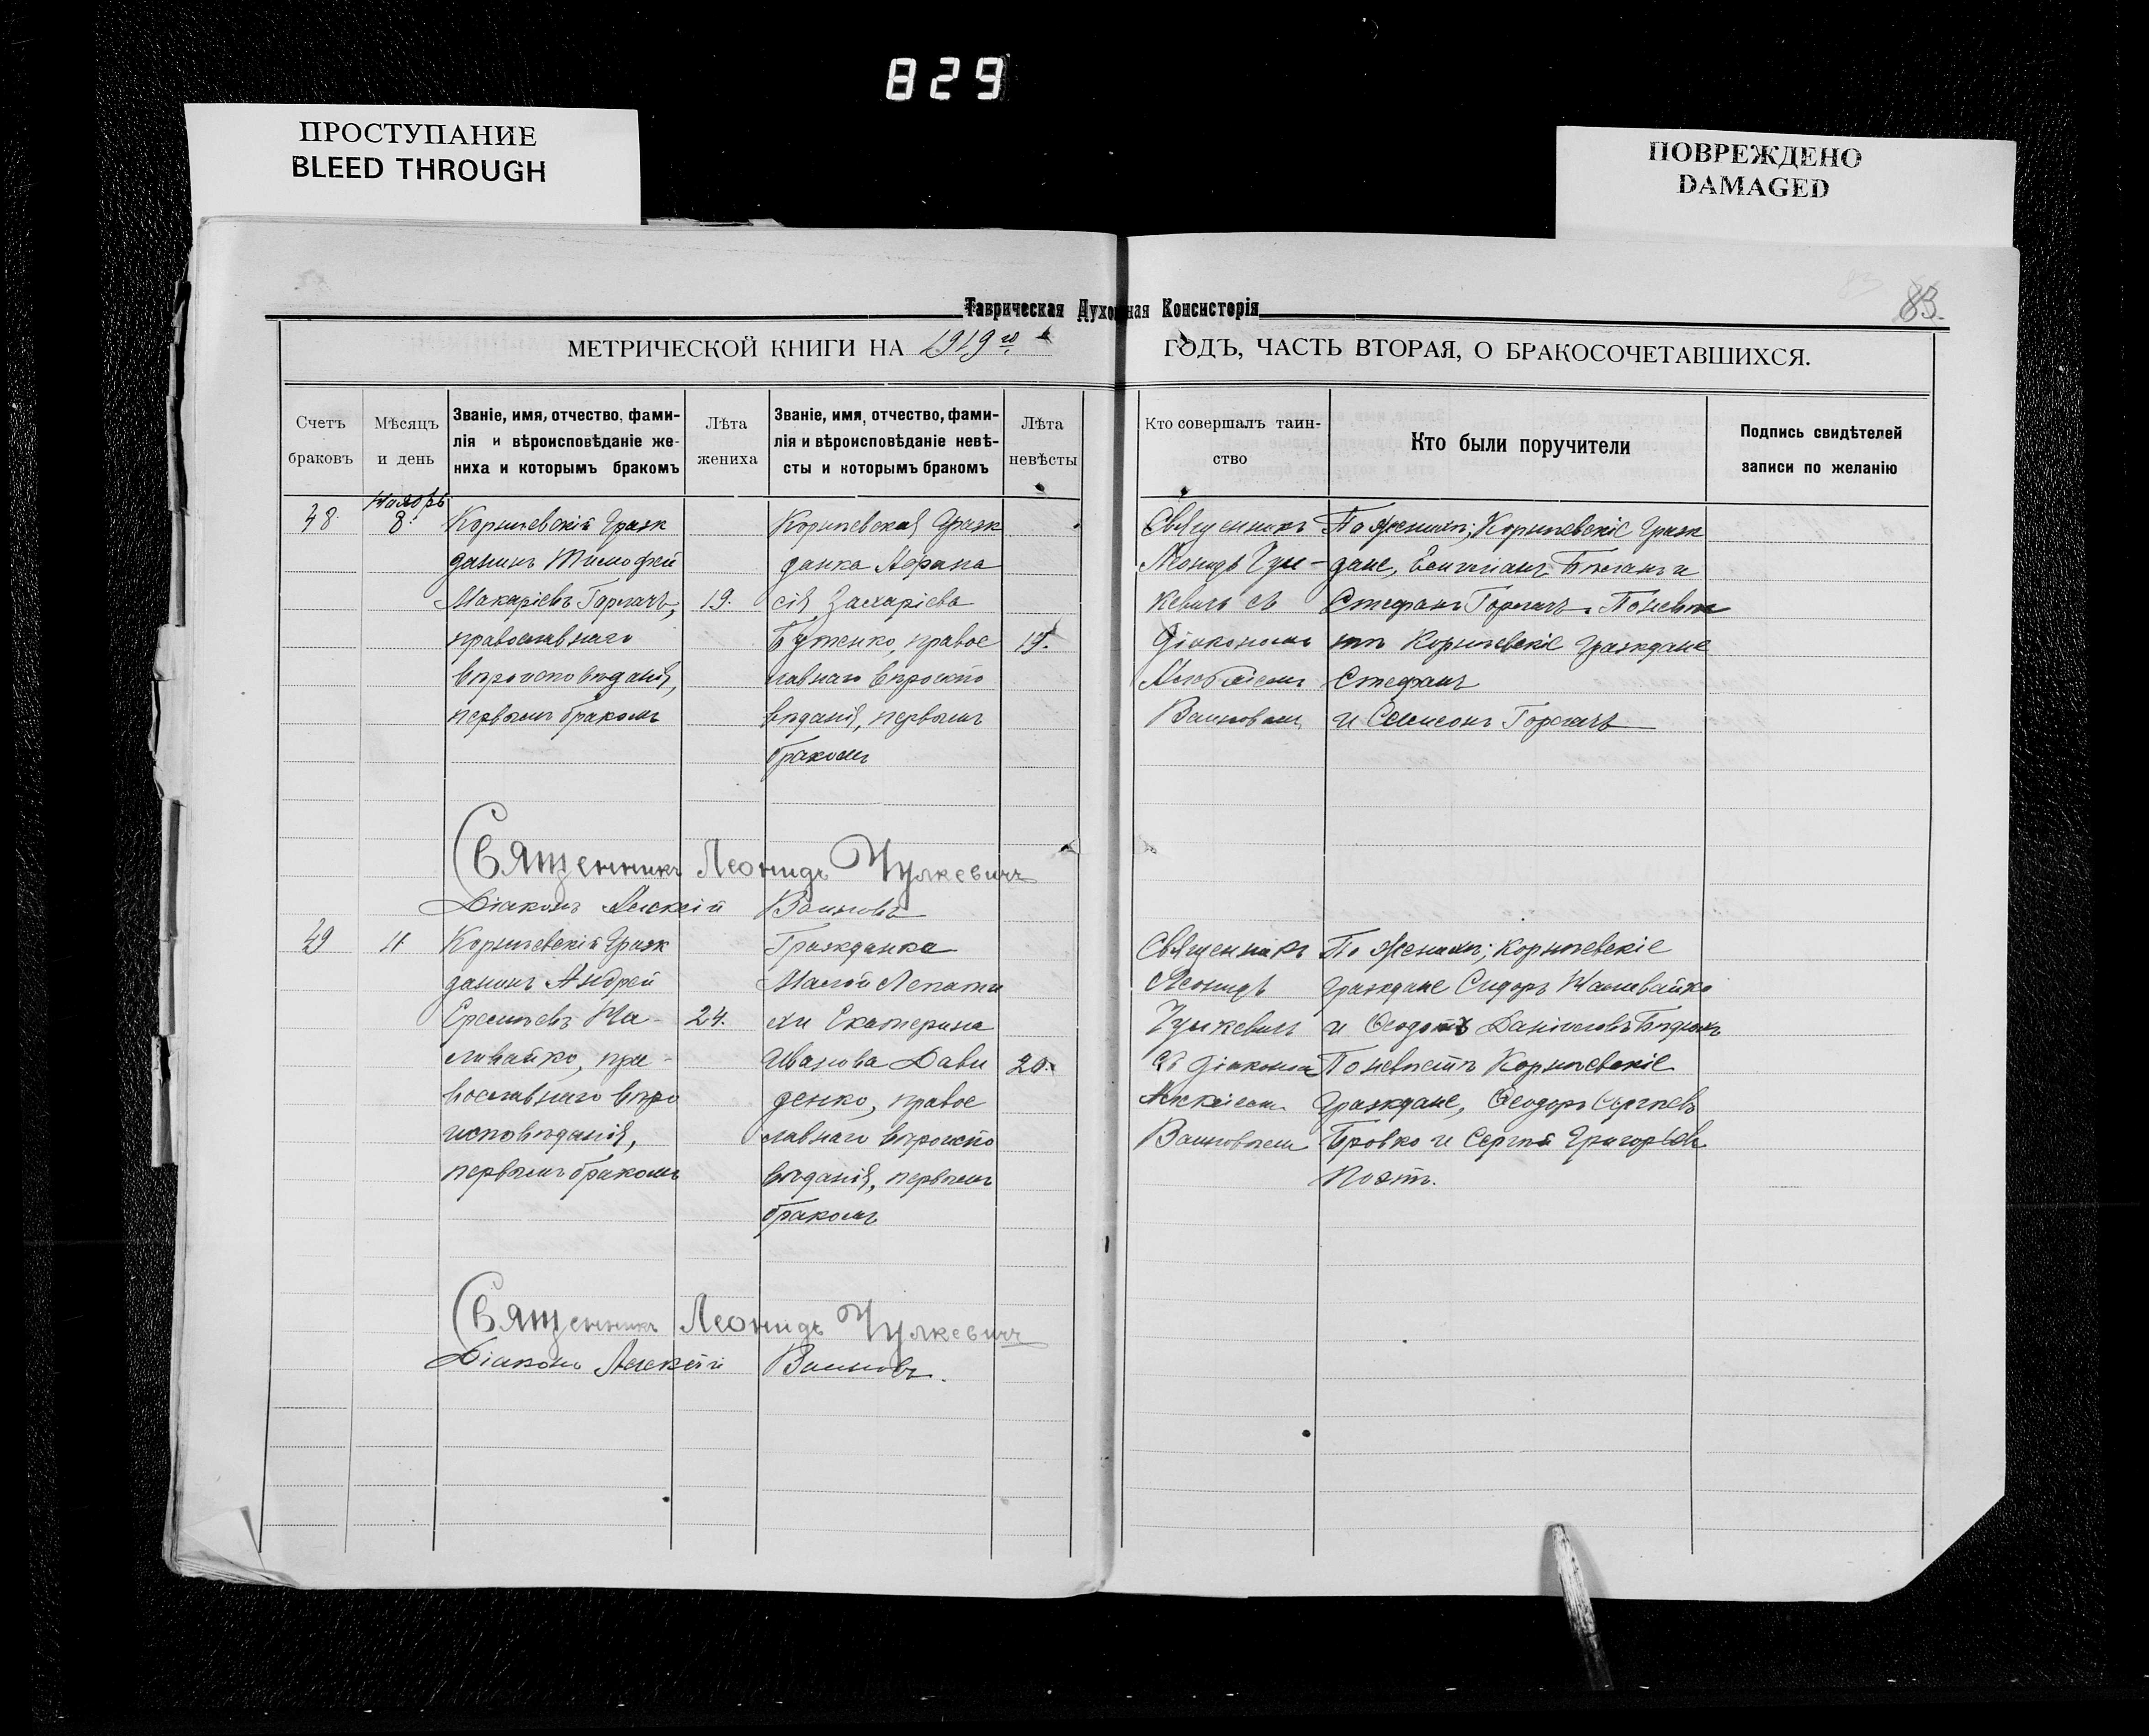 829
ПРОСТУПАНИЕ
BLEED THROUGH
ПОВРЕЖДЕНО
DAMAGED
83.
Таврическая Духовная Консисторія
МЕТРИЧЕСКОЙ КНИГИ НА 1919 го ГОДЪ, ЧАСТЬ ВТОРАЯ, О БРАКОСОЧЕТАВШИХСЯ.
Счетъ
браковъ
Мѣсяцъ
и день
Званіе, имя, отчество, фами-
лія и вѣроисповѣданіе же-
ниха и которымъ бракомъ
Лѣта
жениха
Званіе, имя, отчество, фами-
лія и вѣроисповѣданіе невѣ-
сты и которымъ бракомъ
Лѣта
невѣсты
Кто совершалъ таин-
ство
Кто были поручители
Подпись свидѣтелей
записи по желанію
48.
Ноябрь
8.
Корнiевскiй Граж
данинъ Тимофей
Макарiевъ Горгачъ,
православнаго
вѣроисповѣданія,
первымъ бракомъ
19.
Корнiевская Граж
данка Афана
сiя Захарiева
Бутенко, правос
лавнаго вѣроиспо
вѣданія, первымъ
бракомъ
19.
Священникъ
Леонидъ Чул-
кевичъ съ
Діакономъ
Алексiемъ
По женихѣ; Корнiевскiе Граж
дане,
Стефанъ Горгачъ. По невѣс
тѣ Корнiевскiе Граждане
Стефанъ
и Самсонъ Горгачъ
Священникъ Леонидъ Чулкевичъ
Діаконъ Алексiй
49
11
Корнiевскiй Граж
данинъ Андрей
На-
ливайко, пра-
вославнаго вѣро
исповѣданія,
первымъ бракомъ
24.
Гражданка
Малой Лепати
хи Екатерина
Иванова Дави
денко, правос
лавнаго вѣроиспо
вѣданія, первымъ
бракомъ
20.
Священникъ
Леонидъ
Чулкевичъ
съ Діаконом
Алексiемъ
По женихѣ; Корнiевскiе
Граждане Сидоръ Наливайко
и Ѳеодотъ Данiиловъ
По невѣстѣ Корнiевскiе
Граждане, Ѳеодоръ Сергѣевъ
Бровко и Сергѣй Григорьев
Священникъ Леонидъ Чулкевичъ
Діаконъ Алексiй